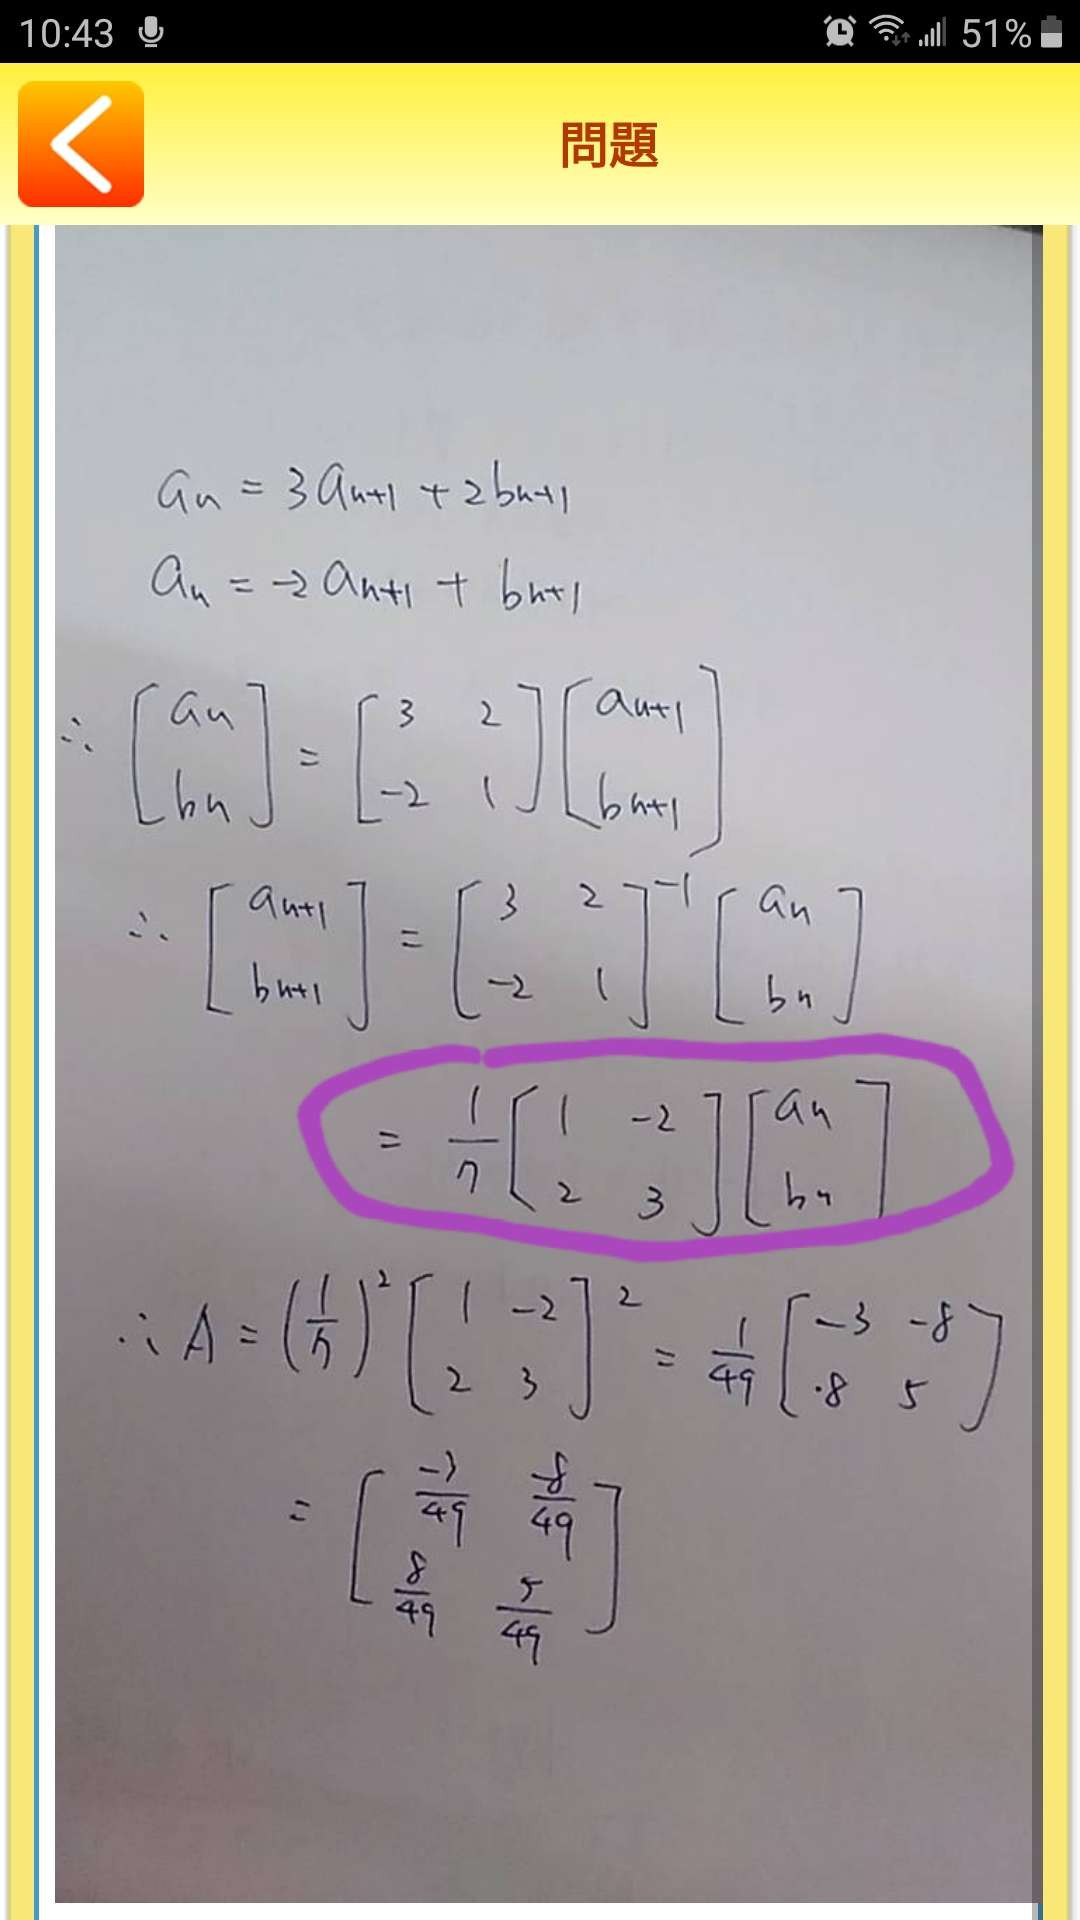 10:43 51%
問題
an = 3an+1 + 2bn+1
an = -2an+1 + bn+1
∴ [an bn] = [3 2 -2 1] [an+1 bn+1]
∴ [an+1 bn+1] = [3 2 -2 1]^-1 [an bn]
= 1/7 [1 -2 2 3] [an bn]
∴ A = (1/7)^2 [1 -2 2 3]^2 = 1/49 [-3 -8 8 5]
= [-3/49 -8/49 8/49 5/49]